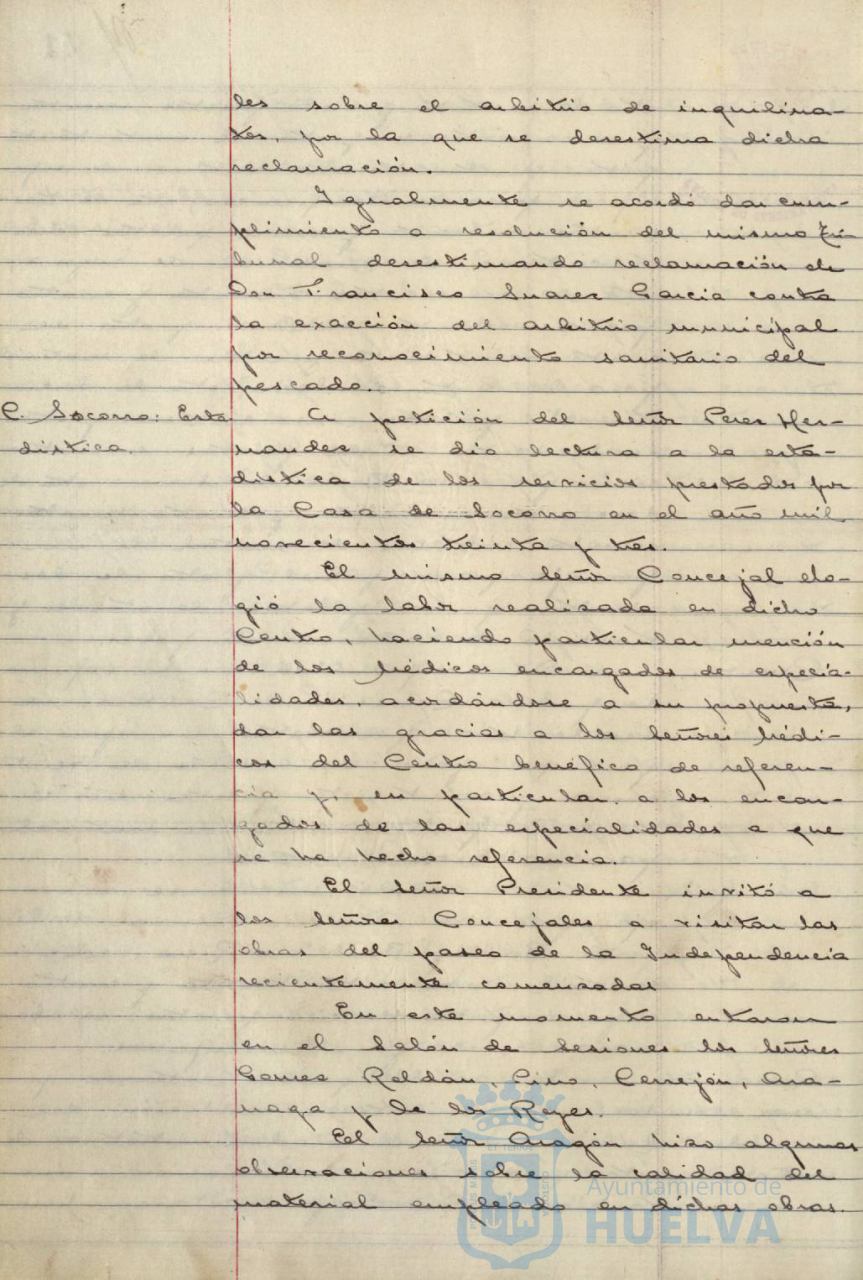 les sobre el arbitrio de inquilina-
tos, por la que se desestima dicha
reclamación.
Igualmente se acordó dar cum-
plimiento a resolución del mismo Tri-
bunal desestimando reclamación de
Don Francisco Suarez Garcia contra
la exacción del arbitrio municipal
por reconocimiento sanitario del
pescado.
C. Socorro: Esta-
distica.
A petición del Señor Perez Her-
nandez se dio lectura a la esta-
distica de los servicios prestados por
la Casa de Socorro en el año mil
novecientos treinta y tres.
El mismo Señor Concejal elo-
gió la labor realizada en dicho
Centro, haciendo particular mención
de los Médicos encargados de especia-
lidades, acordándose a su propuesta,
dar las gracias a los Señores Médi-
cos del Centro benéfico de referen-
cia y, en particular, a los encar-
gados de las especialidades a que
se ha hecho referencia.
El Señor Presidente invitó a
los Señores Concejales a visitar las
obras del paseo de la Independencia
recientemente comenzadas
En este momento entraron
en el Salón de Sesiones los Señores
Gomez Roldán, Pino, Cerrejón, Ara-
naga y de los Reyes.
El Señor Aragón hizo algunas
observaciones sobre la calidad del
material empleado en dichas obras.
Ayuntamiento de
HUELVA